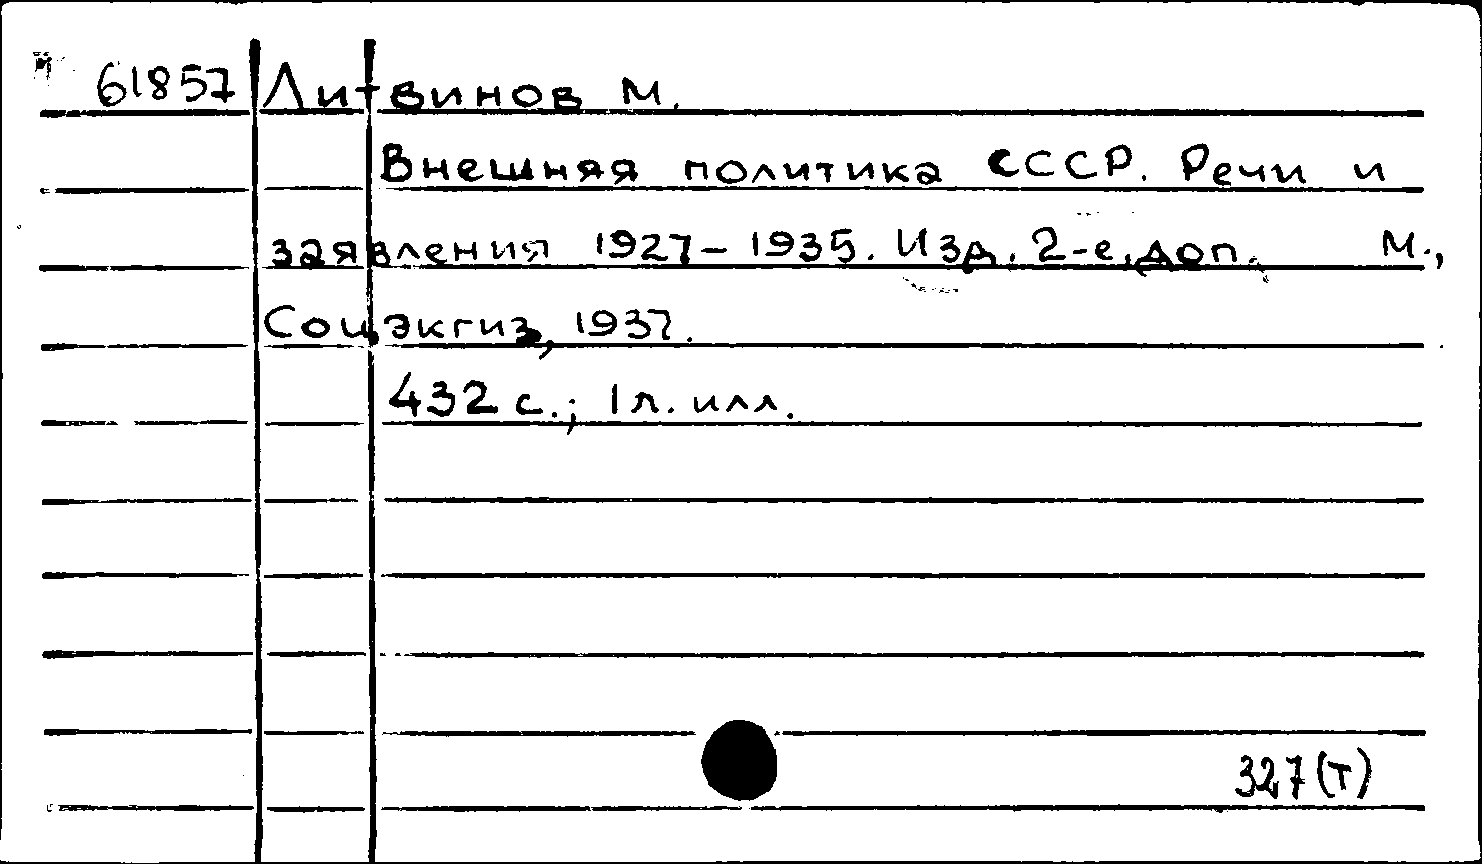 61857 Литвинов М.
Внешняя политика СССР. Речи и
заявления 1927-1935. Изд. 2-е, доп. М.,
Соцэкгиз, 1937.
432 с.; 1 л. илл.
327(Т)